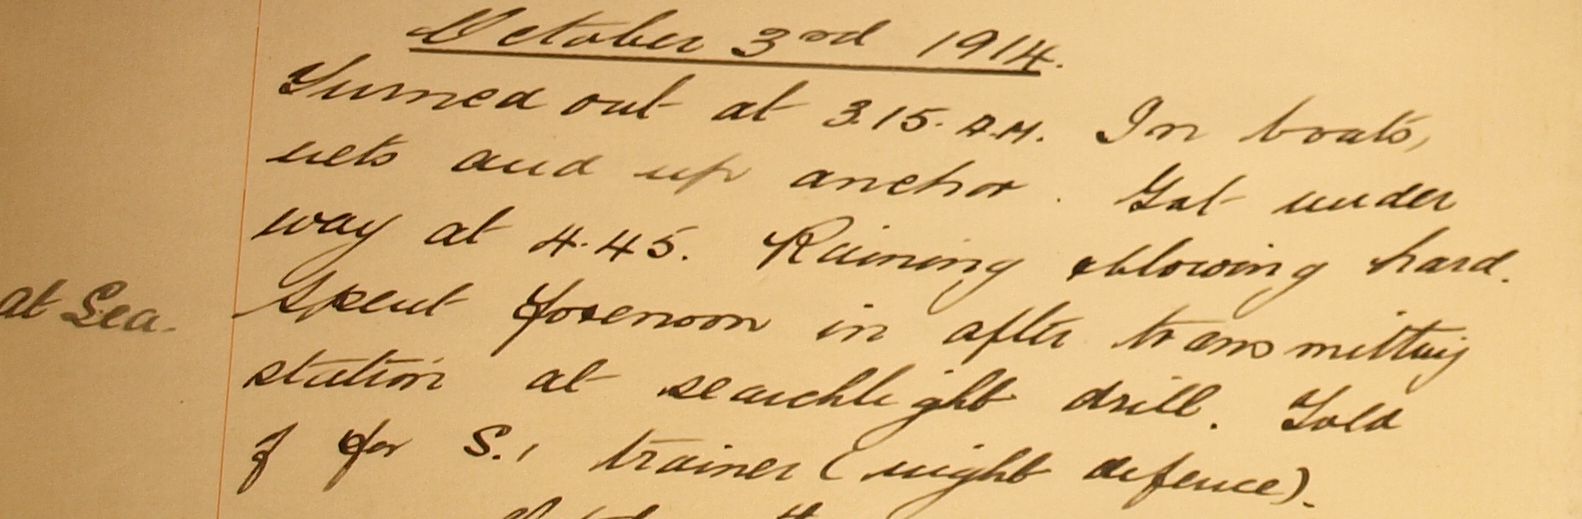 October 3rd 1914.
Turned out at 3.15. A.M. In boats,
nets and up anchor. Got under
way at 4.45. Raining & blowing hard.
at Sea. Spent forenoon in after transmitting
station at searchlight drill. Told
f for S.1 trainer (night defence).